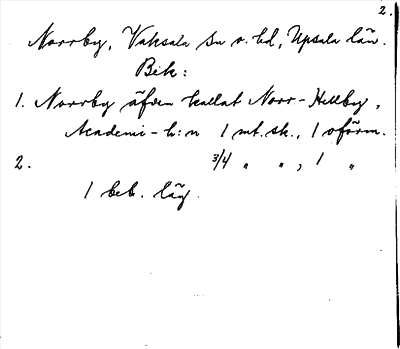 2.
Norrby, Vaksala sn o. hd, Upsala län.
Bek:
1. Norrby äfven kallat Norr-Hellby,
Academi-h:n 1 mt. sk., 1 oförm.
2. 3/4 " ", 1 "
1 beb. läg.